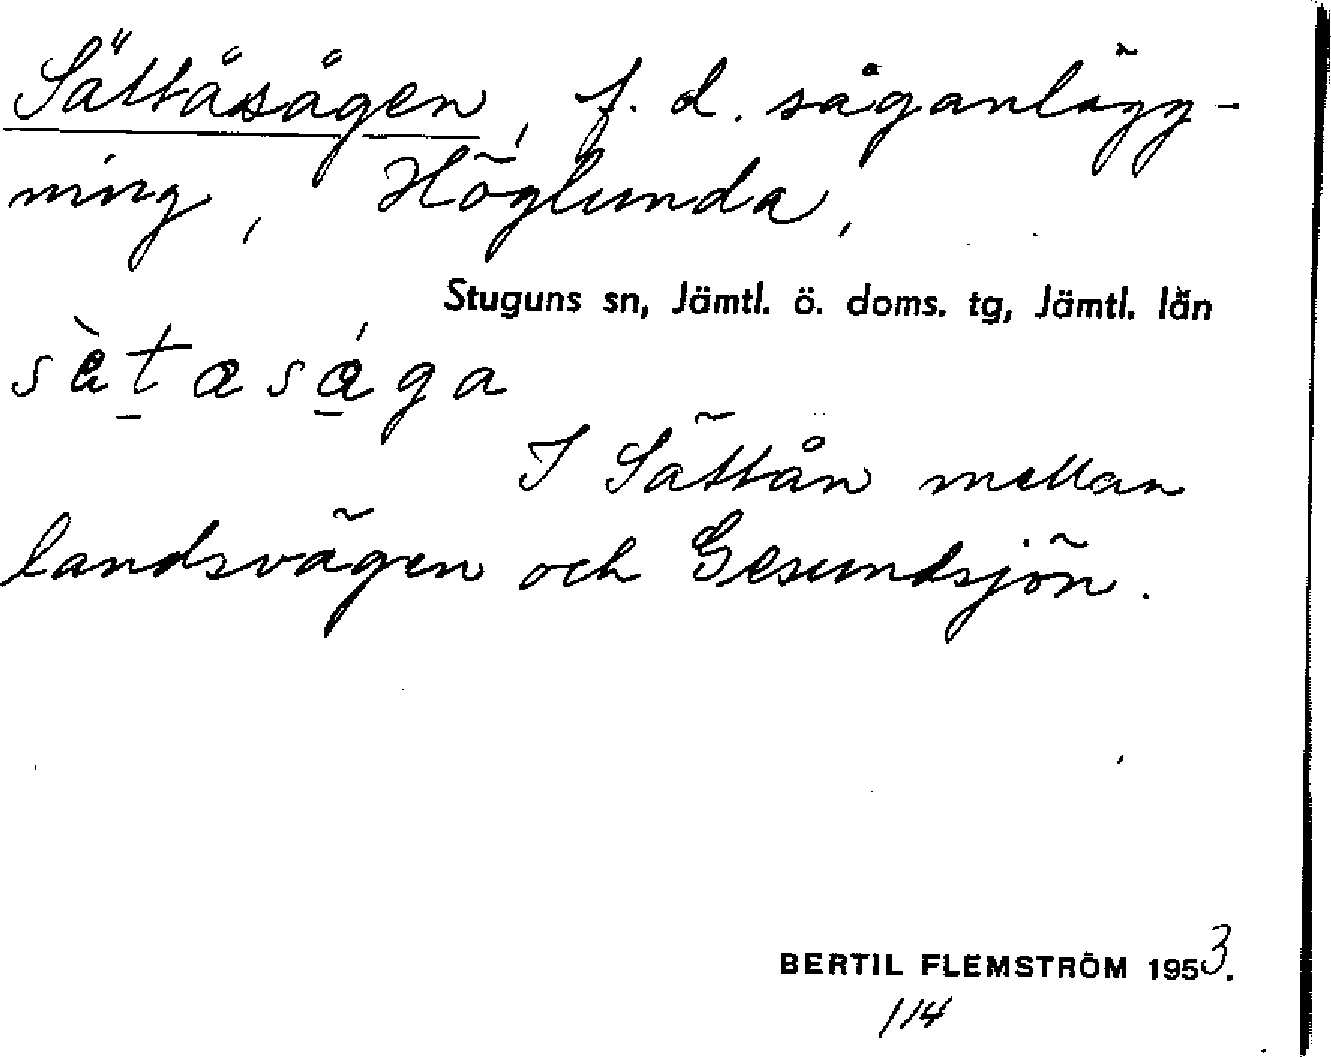 Sättåsågen, f. d. såganlägg-
ning, Höglunda,
Stuguns sn, Jämtl. ö. doms. tg, Jämtl. län
I Sättån mellan
landsvägen och Gesundsjön.
BERTIL FLEMSTRÖM 1953.
114